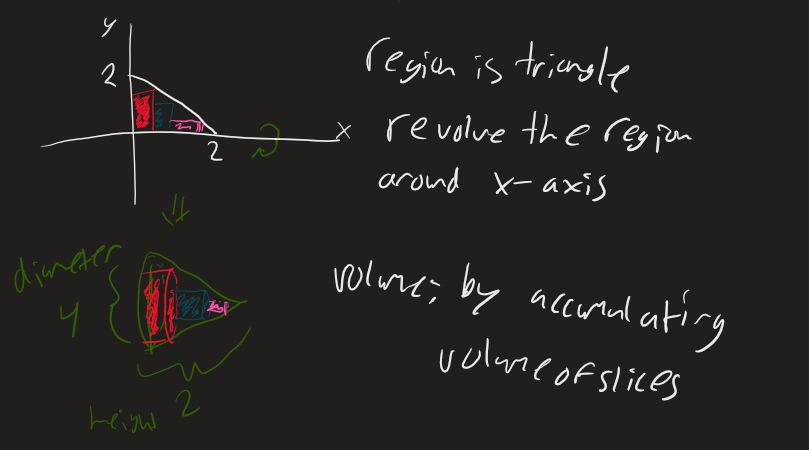 y
2
region is triangle
x
2
revolve the region
around x-axis
diameter
4
volume: by accumulating
volume of slices
height 2